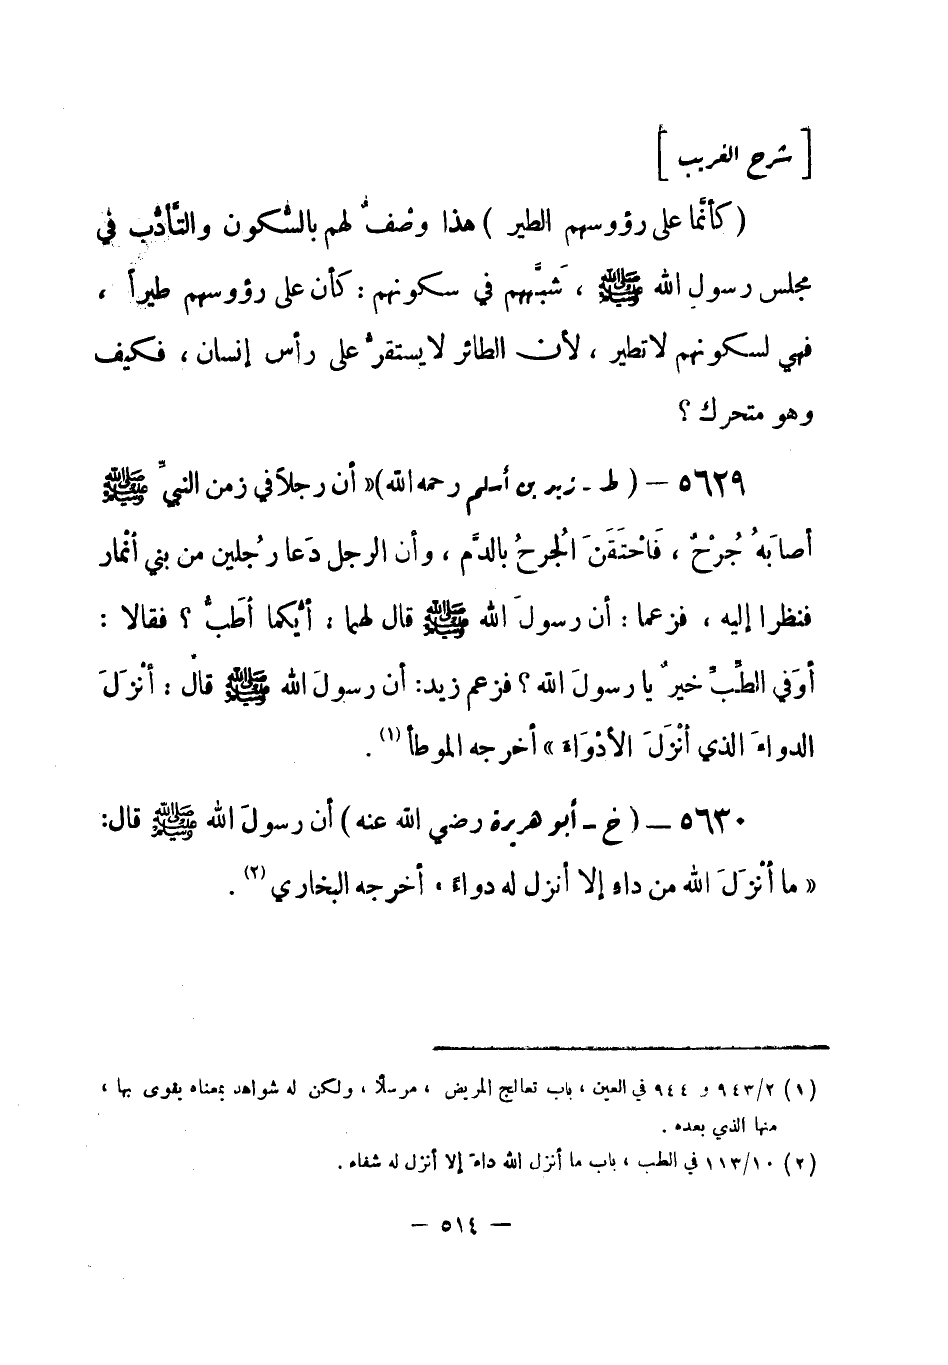 [ شرح الغريب ]
( كأنَّما على رؤوسهم الطير ) هذا وصْفٌ لهم بالسُّكون والتَّأدُّب في
مجلس رسول الله ﷺ ، شَبَّهَهم في سكونهم : كأن على رؤوسهم طيراً ،
فهي لسكونهم لا تطير ، لأن الطائر لا يستقرُّ على رأس إنسان ، فكيف
وهو متحرك ؟
٥٦٢٩ – ( ط - زيد بن أسلم رحمه الله )« أن رجلاً في زمن النبيِّ ﷺ
أصابَهُ جُرْحٌ ، فَاحْتَقَنَ الجُرحُ بالدَّم ، وأن الرجل دَعا رجُلين من بني أنْمار
فنظرا إليه ، فزعما : أن رسولَ الله ﷺ قال لهما : أيُّكما أطَبُّ ؟ فقالا :
أوَفي الطِّبِّ خيرٌ يا رسولَ الله ؟ فزعم زيد: أن رسولَ الله ﷺ قال : أنْزَلَ
الدواءَ الذي أنْزَلَ الأدْوَاءَ » أخرجه الموطأ (١) .
٥٦٣٠ – ( خ - أبو هريرة رضي الله عنه ) أن رسولَ الله ﷺ قال:
« ما أنْزَلَ الله من داءٍ إلا أنزل له دواءً ، أخرجه البخاري (٢) .
(١) ٩٤٣/٢ و ٩٤٤ في العين ، باب تعالج المريض ، مرسلاً ، ولكن له شواهد بمعناه يقوى بها ،
منها الذي بعده .
(٢) ١١٣/١٠ في الطب ، باب ما أنزل الله داءً إلا أنزل له شفاء .
– ٥١٤ –